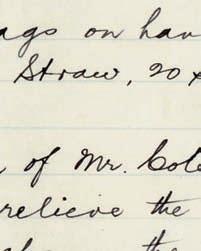 ags on han
Straw, 20 x
of Mr. Cole
relieve the
the